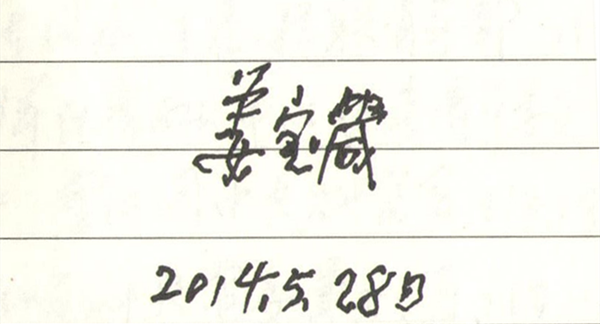 姜宝箴
2014.5.28日